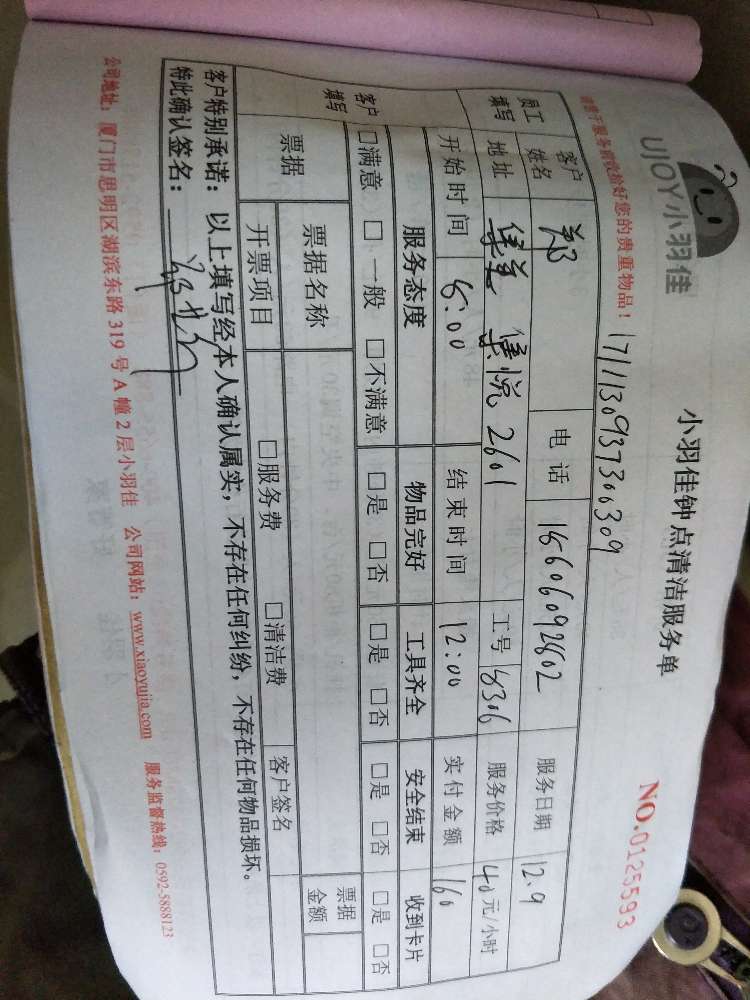 UJOY小羽佳
小羽佳钟点清洁服务单
NO.0125593
请于服务前收拾好您的贵重物品！ 17111309373006309
员工填写 客户姓名 电话 15606092802 服务日期 12.9
地址 集美 集悦 2601 工号 8306 服务价格 40元/小时
开始时间 8:00 结束时间 12:00 实付金额 160
客户填写 服务态度 物品完好 工具齐全 安全结束 收到卡片
□满意 □一般 □不满意 □是 □否 □是 □否 □是 □否 □是 □否
票据 票据名称 票据金额
开票项目 □服务费 □清洁费 客户签名
客户特别承诺：以上填写经本人确认属实，不存在任何纠纷，不存在任何物品损坏。
特此确认签名：
公司地址：厦门市思明区湖滨东路319号A幢2层小羽佳 公司网站：www.xiaoyujia.com 服务监督热线：0592-5888123